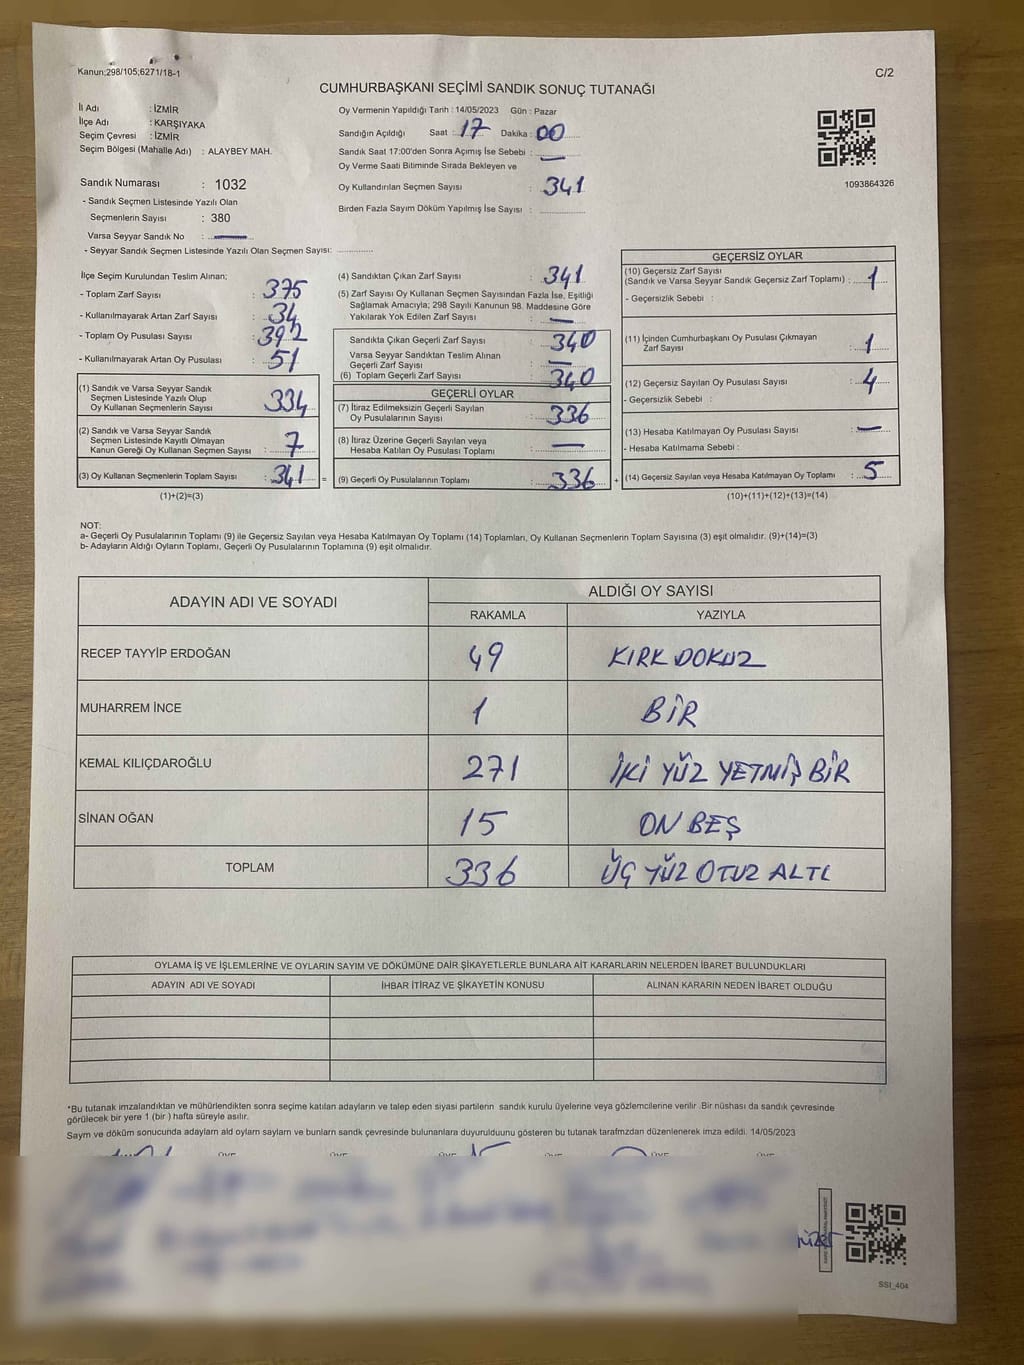 Kanun;298/105;6271/18-1
C/2
CUMHURBAŞKANI SEÇİMİ SANDIK SONUÇ TUTANAĞI
İl Adı : İZMİR
İlçe Adı : KARŞIYAKA
Seçim Çevresi : İZMİR
Seçim Bölgesi (Mahalle Adı) : ALAYBEY MAH.
Sandık Numarası : 1032
- Sandık Seçmen Listesinde Yazılı Olan
Seçmenlerin Sayısı : 380
Varsa Seyyar Sandık No : —
- Seyyar Sandık Seçmen Listesinde Yazılı Olan Seçmen Sayısı: ..............
Oy Vermenin Yapıldığı Tarih : 14/05/2023 Gün : Pazar
Sandığın Açıldığı Saat : 17 Dakika : 00
Sandık Saat 17:00'den Sonra Açımış İse Sebebi : —
Oy Verme Saati Bitiminde Sırada Bekleyen ve
Oy Kullandırılan Seçmen Sayısı : 341
Birden Fazla Sayım Döküm Yapılmış İse Sayısı : ..............
1093864326
İlçe Seçim Kurulundan Teslim Alınan;
- Toplam Zarf Sayısı : 375
- Kullanılmayarak Artan Zarf Sayısı : 34
- Toplam Oy Pusulası Sayısı : 392
- Kullanılmayarak Artan Oy Pusulası : 51
(1) Sandık ve Varsa Seyyar Sandık
Seçmen Listesinde Yazılı Olup
Oy Kullanan Seçmenlerin Sayısı : 334
(2) Sandık ve Varsa Seyyar Sandık
Seçmen Listesinde Kayıtlı Olmayan
Kanun Gereği Oy Kullanan Seçmen Sayısı : 7
(3) Oy Kullanan Seçmenlerin Toplam Sayısı : 341 =
(1)+(2)=(3)
(4) Sandıktan Çıkan Zarf Sayısı : 341
(5) Zarf Sayısı Oy Kullanan Seçmen Sayısından Fazla İse, Eşitliği
Sağlamak Amacıyla; 298 Sayılı Kanunun 98. Maddesine Göre
Yakılarak Yok Edilen Zarf Sayısı : —
Sandıkta Çıkan Geçerli Zarf Sayısı : 340
Varsa Seyyar Sandıktan Teslim Alınan
Geçerli Zarf Sayısı : —
(6) Toplam Geçerli Zarf Sayısı : 340
GEÇERLİ OYLAR
(7) İtiraz Edilmeksizin Geçerli Sayılan
Oy Pusulalarının Sayısı : 336
(8) İtiraz Üzerine Geçerli Sayılan veya
Hesaba Katılan Oy Pusulası Toplamı : —
(9) Geçerli Oy Pusulalarının Toplamı : 336 +
GEÇERSİZ OYLAR
(10) Geçersiz Zarf Sayısı
(Sandık ve Varsa Seyyar Sandık Geçersiz Zarf Toplamı) : 1
- Geçersizlik Sebebi :
(11) İçinden Cumhurbaşkanı Oy Pusulası Çıkmayan
Zarf Sayısı : 1
(12) Geçersiz Sayılan Oy Pusulası Sayısı : 4
- Geçersizlik Sebebi :
(13) Hesaba Katılmayan Oy Pusulası Sayısı : —
- Hesaba Katılmama Sebebi :
(14) Geçersiz Sayılan veya Hesaba Katılmayan Oy Toplamı : 5
(10)+(11)+(12)+(13)=(14)
NOT:
a- Geçerli Oy Pusulalarının Toplamı (9) ile Geçersiz Sayılan veya Hesaba Katılmayan Oy Toplamı (14) Toplamları, Oy Kullanan Seçmenlerin Toplam Sayısına (3) eşit olmalıdır. (9)+(14)=(3)
b- Adayların Aldığı Oyların Toplamı, Geçerli Oy Pusulalarının Toplamına (9) eşit olmalıdır.
ADAYIN ADI VE SOYADI
ALDIĞI OY SAYISI
RAKAMLA YAZIYLA
RECEP TAYYİP ERDOĞAN 49 KIRK DOKUZ
MUHARREM İNCE 1 BİR
KEMAL KILIÇDAROĞLU 271 İKİ YÜZ YETMİŞ BİR
SİNAN OĞAN 15 ON BEŞ
TOPLAM 336 ÜÇ YÜZ OTUZ ALTI
OYLAMA İŞ VE İŞLEMLERİNE VE OYLARIN SAYIM VE DÖKÜMÜNE DAİR ŞİKAYETLERLE BUNLARA AİT KARARLARIN NELERDEN İBARET BULUNDUKLARI
ADAYIN ADI VE SOYADI İHBAR İTİRAZ VE ŞİKAYETİN KONUSU ALINAN KARARIN NEDEN İBARET OLDUĞU
*Bu tutanak imzalandıktan ve mühürlendikten sonra seçime katılan adayların ve talep eden siyasi partilerin sandık kurulu üyelerine veya gözlemcilerine verilir .Bir nüshası da sandık çevresinde
görülecek bir yere 1 (bir ) hafta süreyle asılır.
Sayım ve döküm sonucunda adaylarn ald oylarn saylarn ve bunlarn sandk çevresinde bulunanlara duyurulduunu gösteren bu tutanak tarafmzdan düzenlenerek imza edildi. 14/05/2023
SSI_404